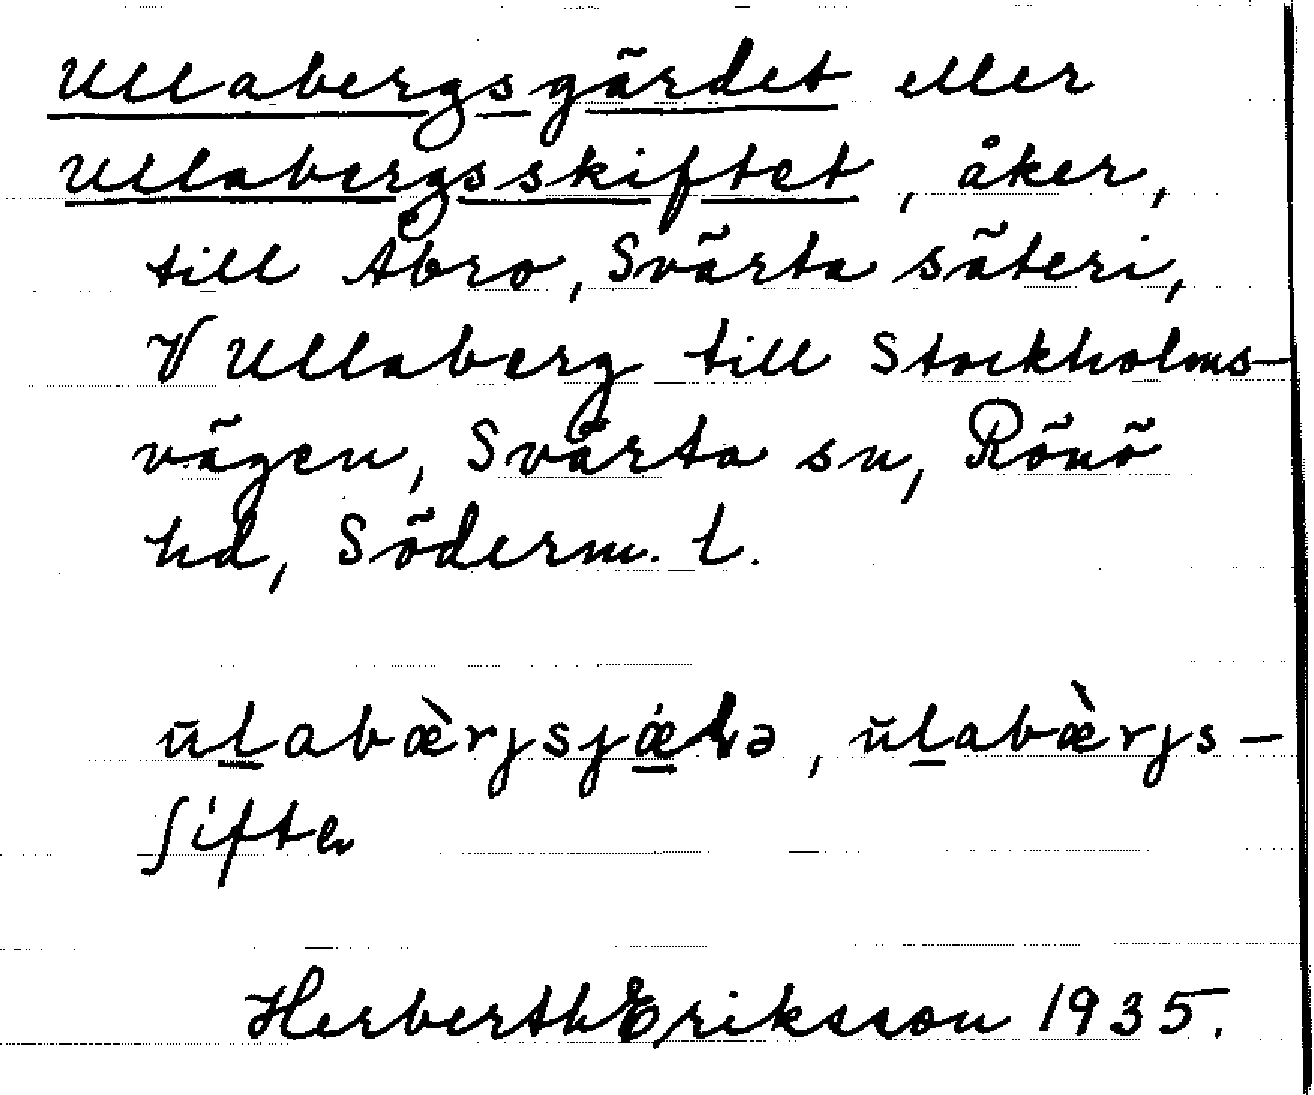 Ullabergsgärdet eller
Ullabergsskiftet, åker,
till Åbro, Svärta säteri,
V Ullaberg till Stockholms-
vägen, Svärta sn, Rönö
hd, Söderm. l.
ŭl̲abæ̀rjsjǽ̲ɖə, ŭl̲abæ̀rjs-
ʃifte
Herberth Eriksson 1935.